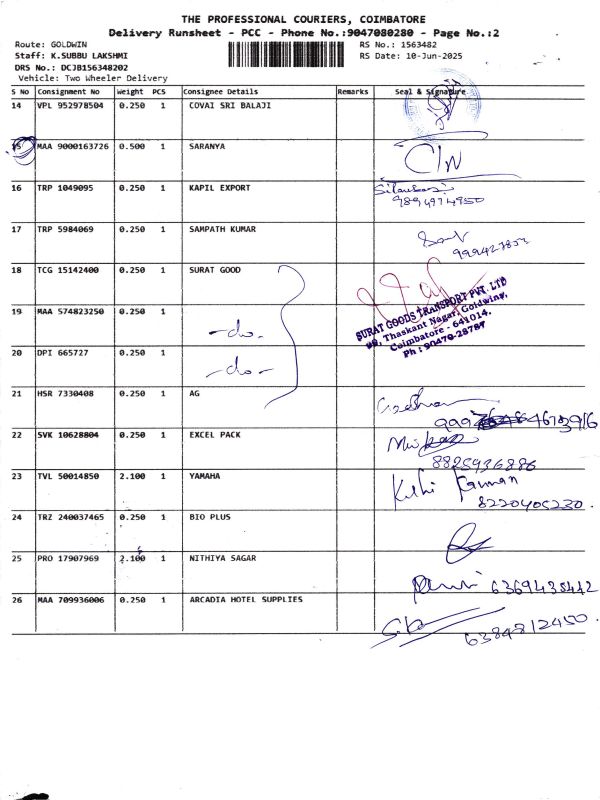 THE PROFESSIONAL COURIERS, COIMBATORE
Delivery Runsheet - PCC - Phone No.:9047080280 - Page No.:2
Route: GOLDWIN
RS No.: 1563482
Staff: K.SUBBU LAKSHMI
RS Date: 10-Jun-2025
DRS No.: DCJB156348202
Vehicle: Two Wheeler Delivery
S No Consignment No Weight PCS Consignee Details Remarks Seal & Signature
14 VPL 952978504 0.250 1 COVAI SRI BALAJI
15 MAA 9000163726 0.500 1 SARANYA
16 TRP 1049095 0.250 1 KAPIL EXPORT
9894974950
17 TRP 5984069 0.250 1 SAMPATH KUMAR
18 TCG 15142400 0.250 1 SURAT GOOD
SURAT GOODS TRANSPORT PVT. LTD
Thaskant Nagar, Goldwins,
Coimbatore - 641014.
Ph : 90470-28787
19 MAA 574823250 0.250 1
-do-
20 DPI 665727 0.250 1
-do-
21 HSR 7330408 0.250 1 AG
22 SVK 10628804 0.250 1 EXCEL PACK
8825936886
23 TVL 50014850 2.100 1 YAMAHA
8220405230.
24 TRZ 240037465 0.250 1 BIO PLUS
25 PRO 17907969 2.100 1 NITHIYA SAGAR
6369435442
26 MAA 709936006 0.250 1 ARCADIA HOTEL SUPPLIES
6384812450.